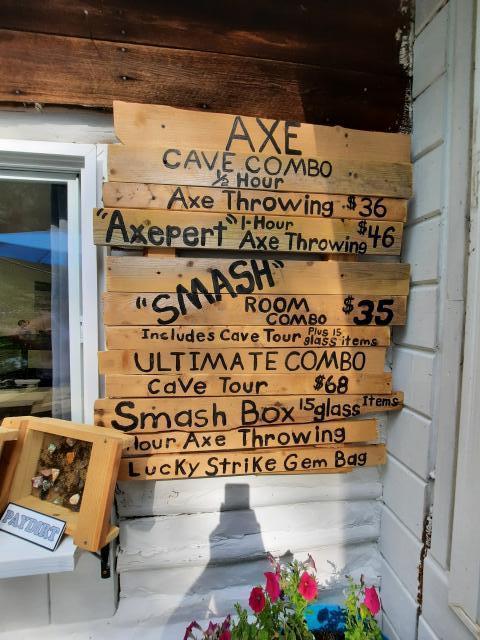 AXE
CAVE COMBO
½ Hour
Axe Throwing $36
"Axepert" 1-Hour
Axe Throwing $46
"SMASH"
ROOM
COMBO $35
Includes Cave Tour Plus 15
glass items
ULTIMATE COMBO
Cave Tour $68
Smash Box 15 glass Items
Axe Throwing
Lucky Strike Gem Bag
PAYDIRT